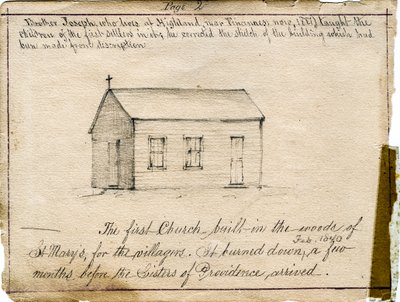 Page 2
Brother Joseph, who lives at Highland, near Vincennes now, 1871, taught the
children of the first settlers in it, he corrected the sketch of the building which had
been made from description
The first Church built in the woods of
St Mary's, for the villagers. It burned down, a few
Feb. 1840
months before the Sisters of Providence arrived.